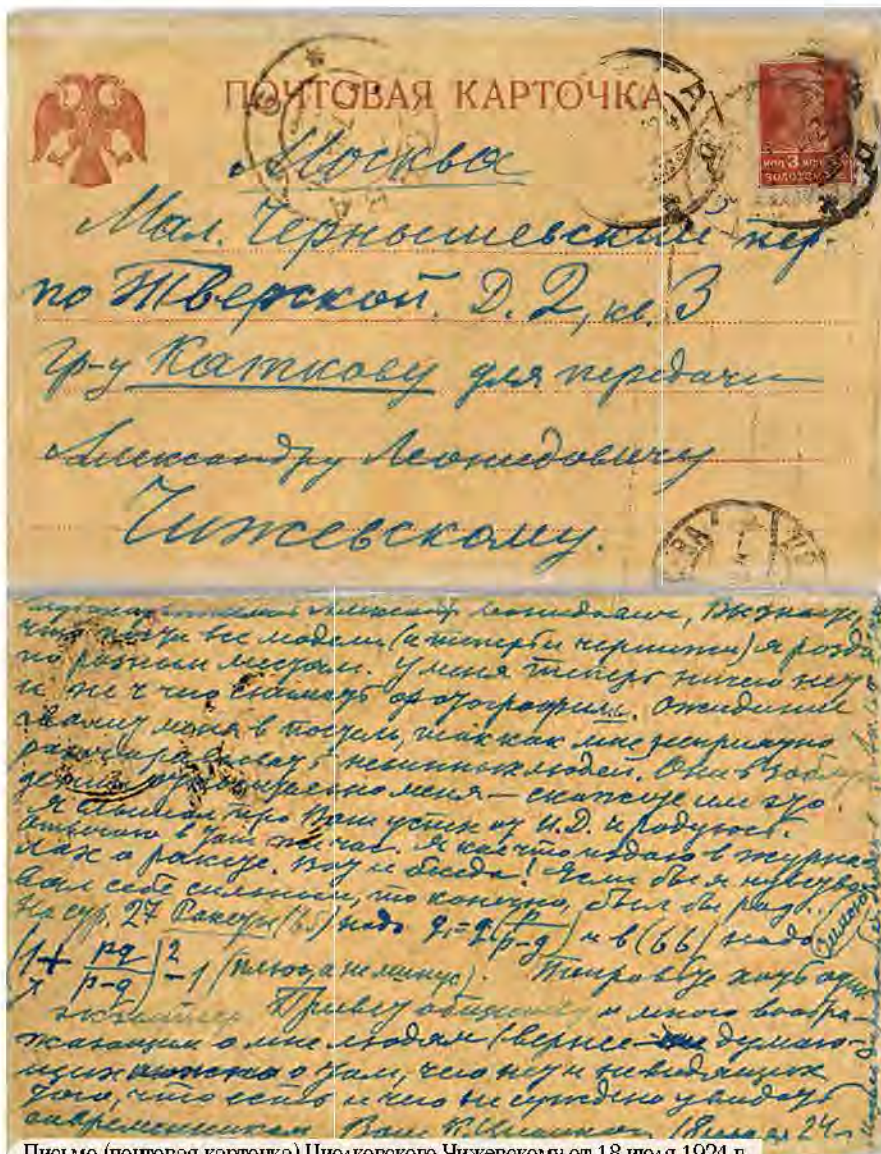 ПОЧТОВАЯ КАРТОЧКА
КОП 3 КОП
ЗОЛОТОМ
Москва
Мал. Чернышевский пер.
по Тверской, Д. 2, кв. 3
гр-у Каткову для передачи
Александру Леонидовичу
Чижевскому.
Леонидович,
что почти все модели (и теперь и чертежи) я разда
по разным местам. У меня теперь ничего нет
и не с чего снимать фотографии. Ожидание
меня в так как мне неприятно
невинных людей. Они в
меня – скажите им это.
Я слышал про Ваш успех от И.Д. и радуюсь.
в час. Я кое что подаю в журна
лах о ракете. Вот и беседа! Если бы я чувство
вал себя сильным, то конечно, был бы рад..
На стр. 27 Ракеты (65) надо q₁=q(p/p-q) и в (66) надо
(1+ pq/p-q)² -1 (плюс, а не минус). хоть один
Привет и много вообра-
жающим о мне людям (вернее – думаю-
щих о том, чего нет и не видящих
того, что есть и чего не суждено увидеть
современникам Ваш К. 18 июля 24 г
Письмо (почтовая карточка) Циолковского Чижевскому от 18 июля 1924 г.